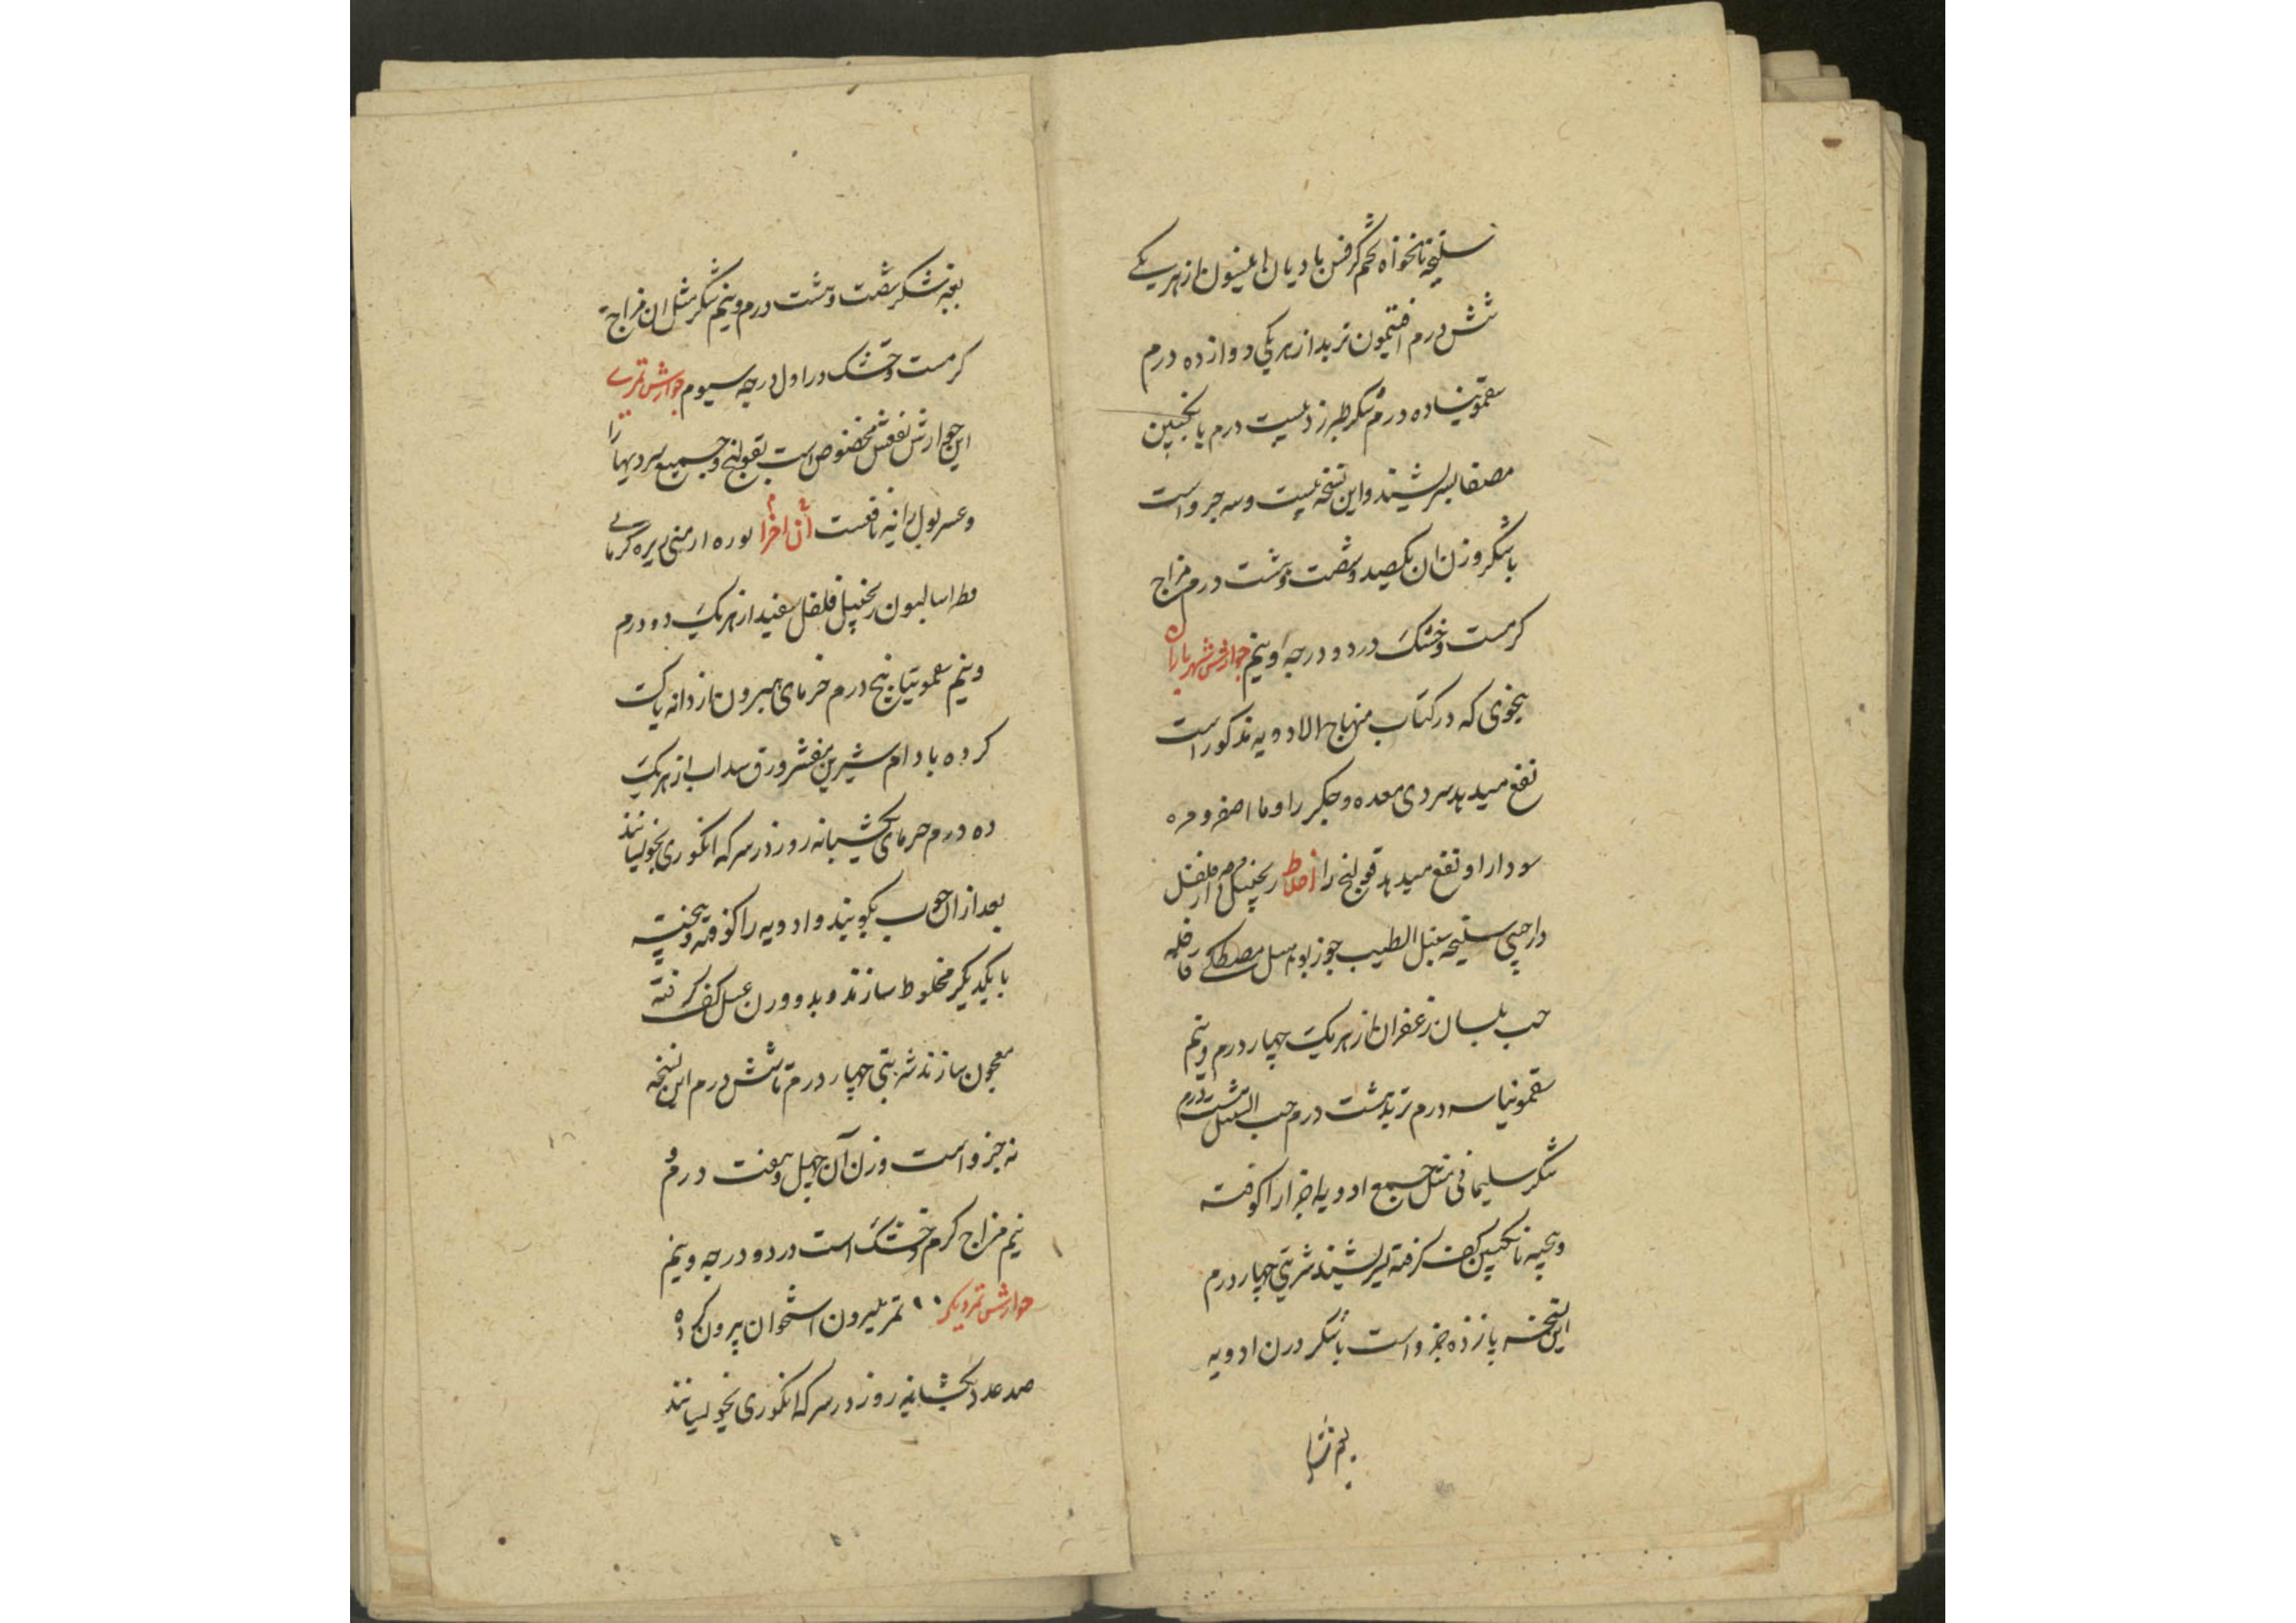 سلیخه نانخواه تخم کرفس بادیان انیسون از هر یکی
شش درم افتیمون تربد از هر یکی دوازده درم
سقمونیا ده درم شکر طبرزد بیست درم بانجبین
مصفا بسرشند و این نسخه بیست و سه جزو است
با شکر وزن ان یکصد و شصت و هشت درم مزاج
کرمست و خشک در دو درجه و نیم جوارش شهریاران
بنحوی که در کتاب منهاج الادویه مذکور است
نفع میدهد سردی معده و جکر را و ما اصفر و مره
سودا را و نفع میدهد قولنج را اخلاط زنجبیل دارفلفل
دارچینی سلیخه سنبل الطیب جوزبوا مصطکی قاقله
حب بلسان زعفران از هر یک چهار درم و نیم
سقمونیا سه درم تربد هشت درم حب النیل هشت درم
شکر سلیمانی مثل جمیع ادویه اجزا را کوفته
و بیخته بانکبین کف کرفته بسرشند شربتی چهار درم
این نسخه پانزده جزو است با شکر وزن ادویه
بغیر شکر شصت و هشت درم و نیم شکر مثل ان مزاج
کرمست و خشک در اول درجه سیوم جوارش تمری
این جوارش نفعش مخصوص است بقولنج و جمیع سردیها را
و عسر بول را نیز نافعست آن اجزا بوره ارمنی زیره کرمانی
فطراسالیون زنجبیل فلفل سفید از هر یک دو درم
و نیم سقمونیا پنج درم خرمای هیرون از دانه پاک
کرده بادام شیرین مقشر ورق سداب از هر یک
ده درم خرمای یکشبانه روز در سرکه انکوری بخویسانند
بعد ازان خوب بکوبند و ادویه را کوفته و بیخته
با یکدیکر مخلوط سازند و بدو وزن عسل کف کرفته
معجون سازند شربتی چهار درم تا شش درم این نسخه
نه جزو است وزن آن چهل و هفت درم و
نیم مزاج کرم و خشک است در دو درجه و نیم
جوارش تمر دیکر تمر هیرون استخوان بیرون کرده
صد عدد یکشبانه روز در سرکه انکوری بخویسانند